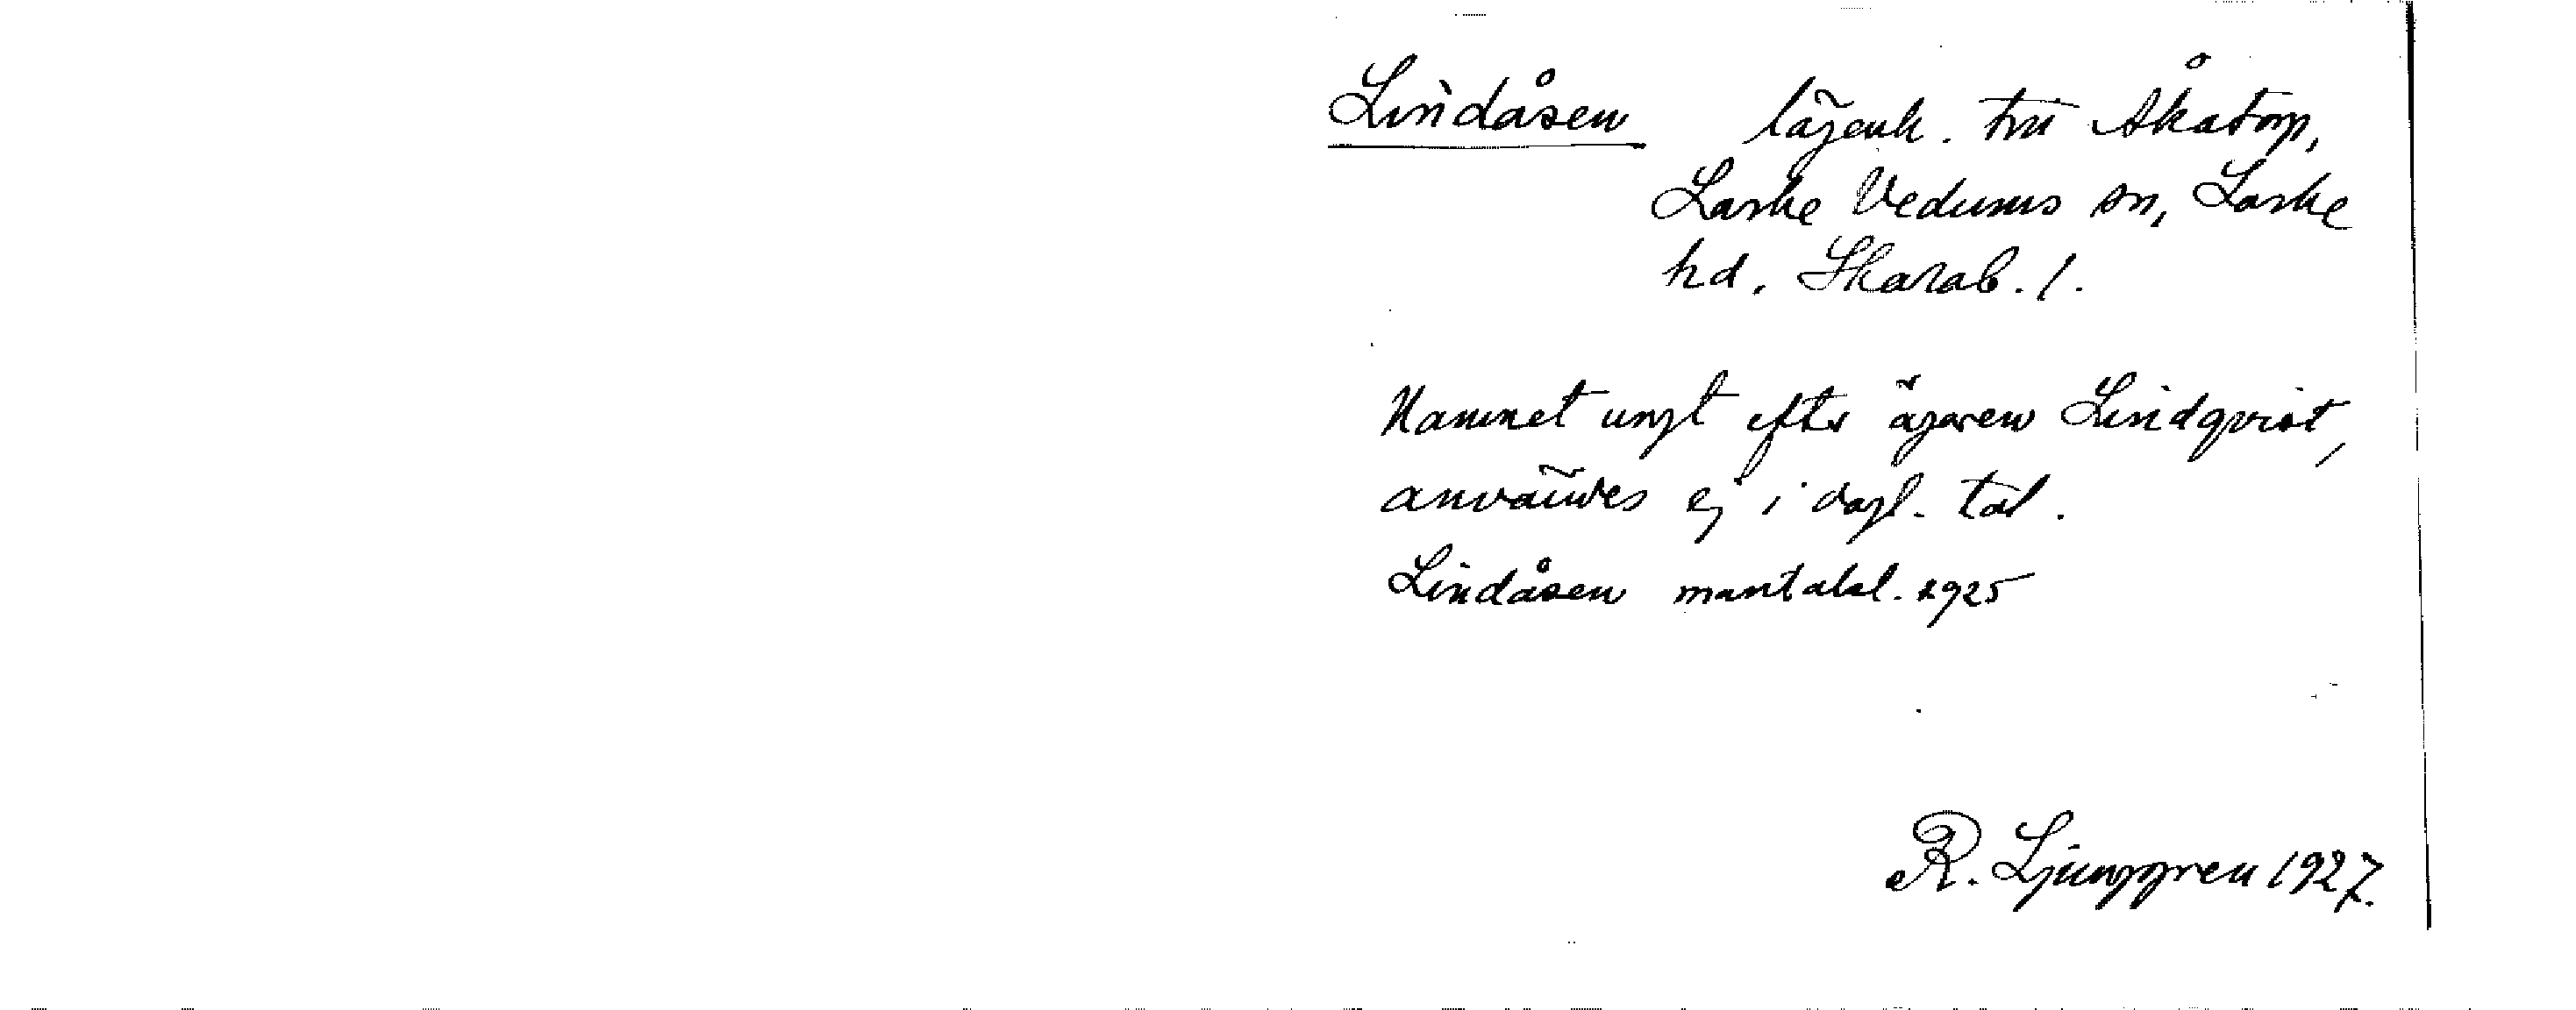 Lindåsen lägenh. tru Åkatorp,
Larke Vedums sn, Larke
hd. Skarab. l.
Namnet ungt efter ägaren Lindqvist,
användes ej i dagl. tal.
Lindåsen mantalsl. 1925
R. Ljunggren 1927.